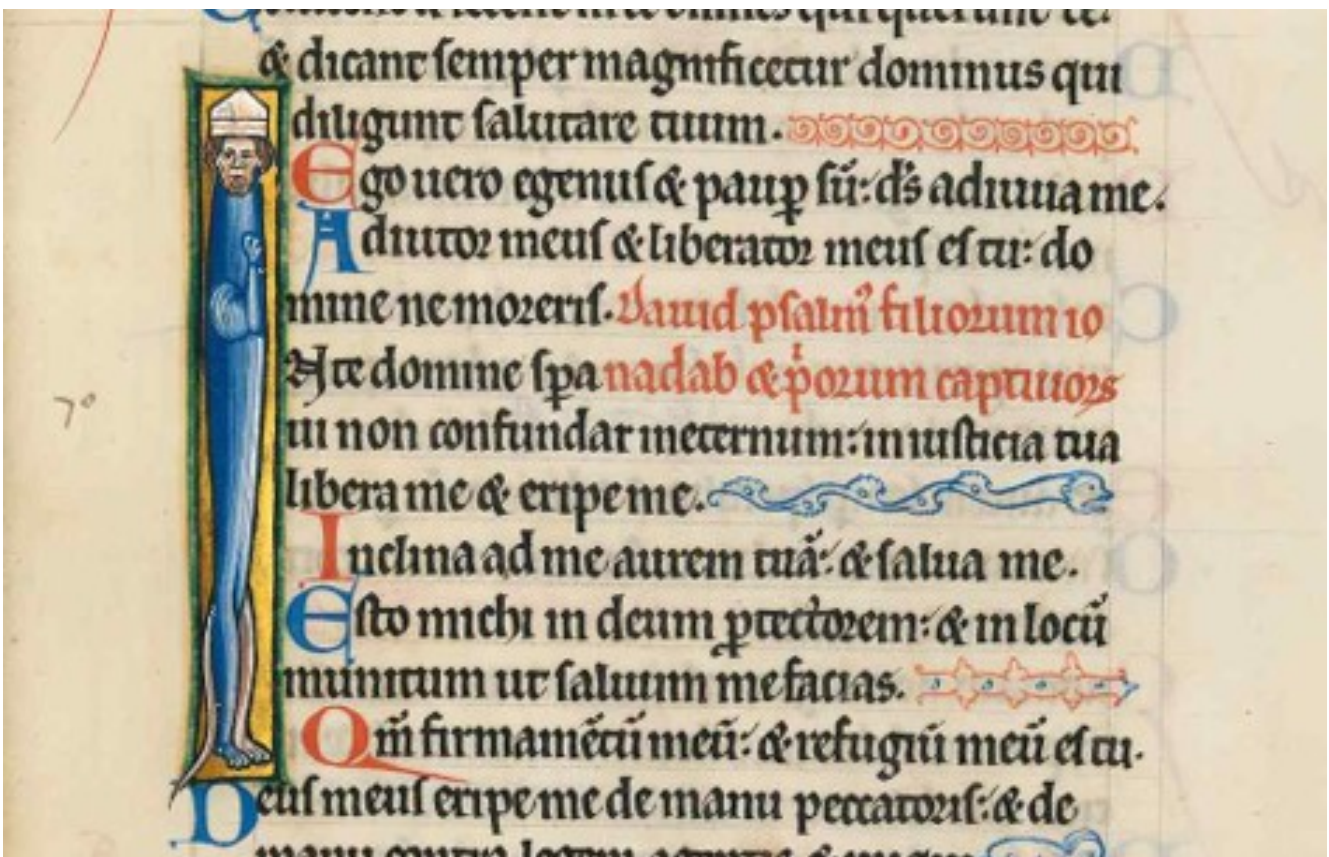 & dicant semper magnificetur dominus qui
diligunt salutare tuum.
Ego uero egenus & paup sū: ds adiuua me.
Adiutor meus & liberator meus es tu: do
mine ne moreris. Dauid psalm filiorum io
In te domine spa nadab & porum captiuors
ui non confundar ineternum: in iusticia tua
libera me & eripe me.
Inclina ad me aurem tuā: & salua me.
70
Esto michi in deum ptectorem: & in locū
munitum ut saluum me facias.
Qm̄ firmamētū meū: & refugiū meū es tu.
Deus meus eripe me de manu peccatoris: & de